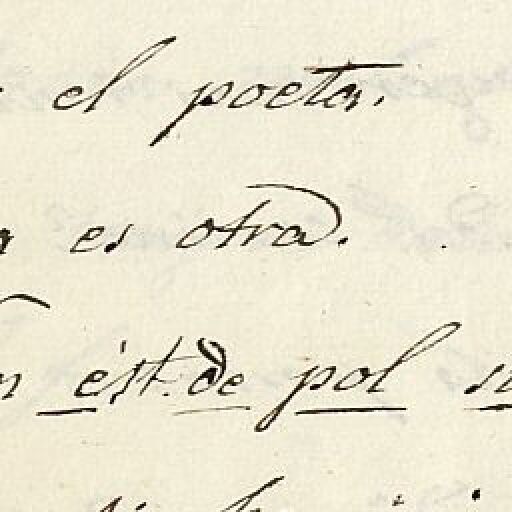 el poeta.
es otra.
ést. de pol